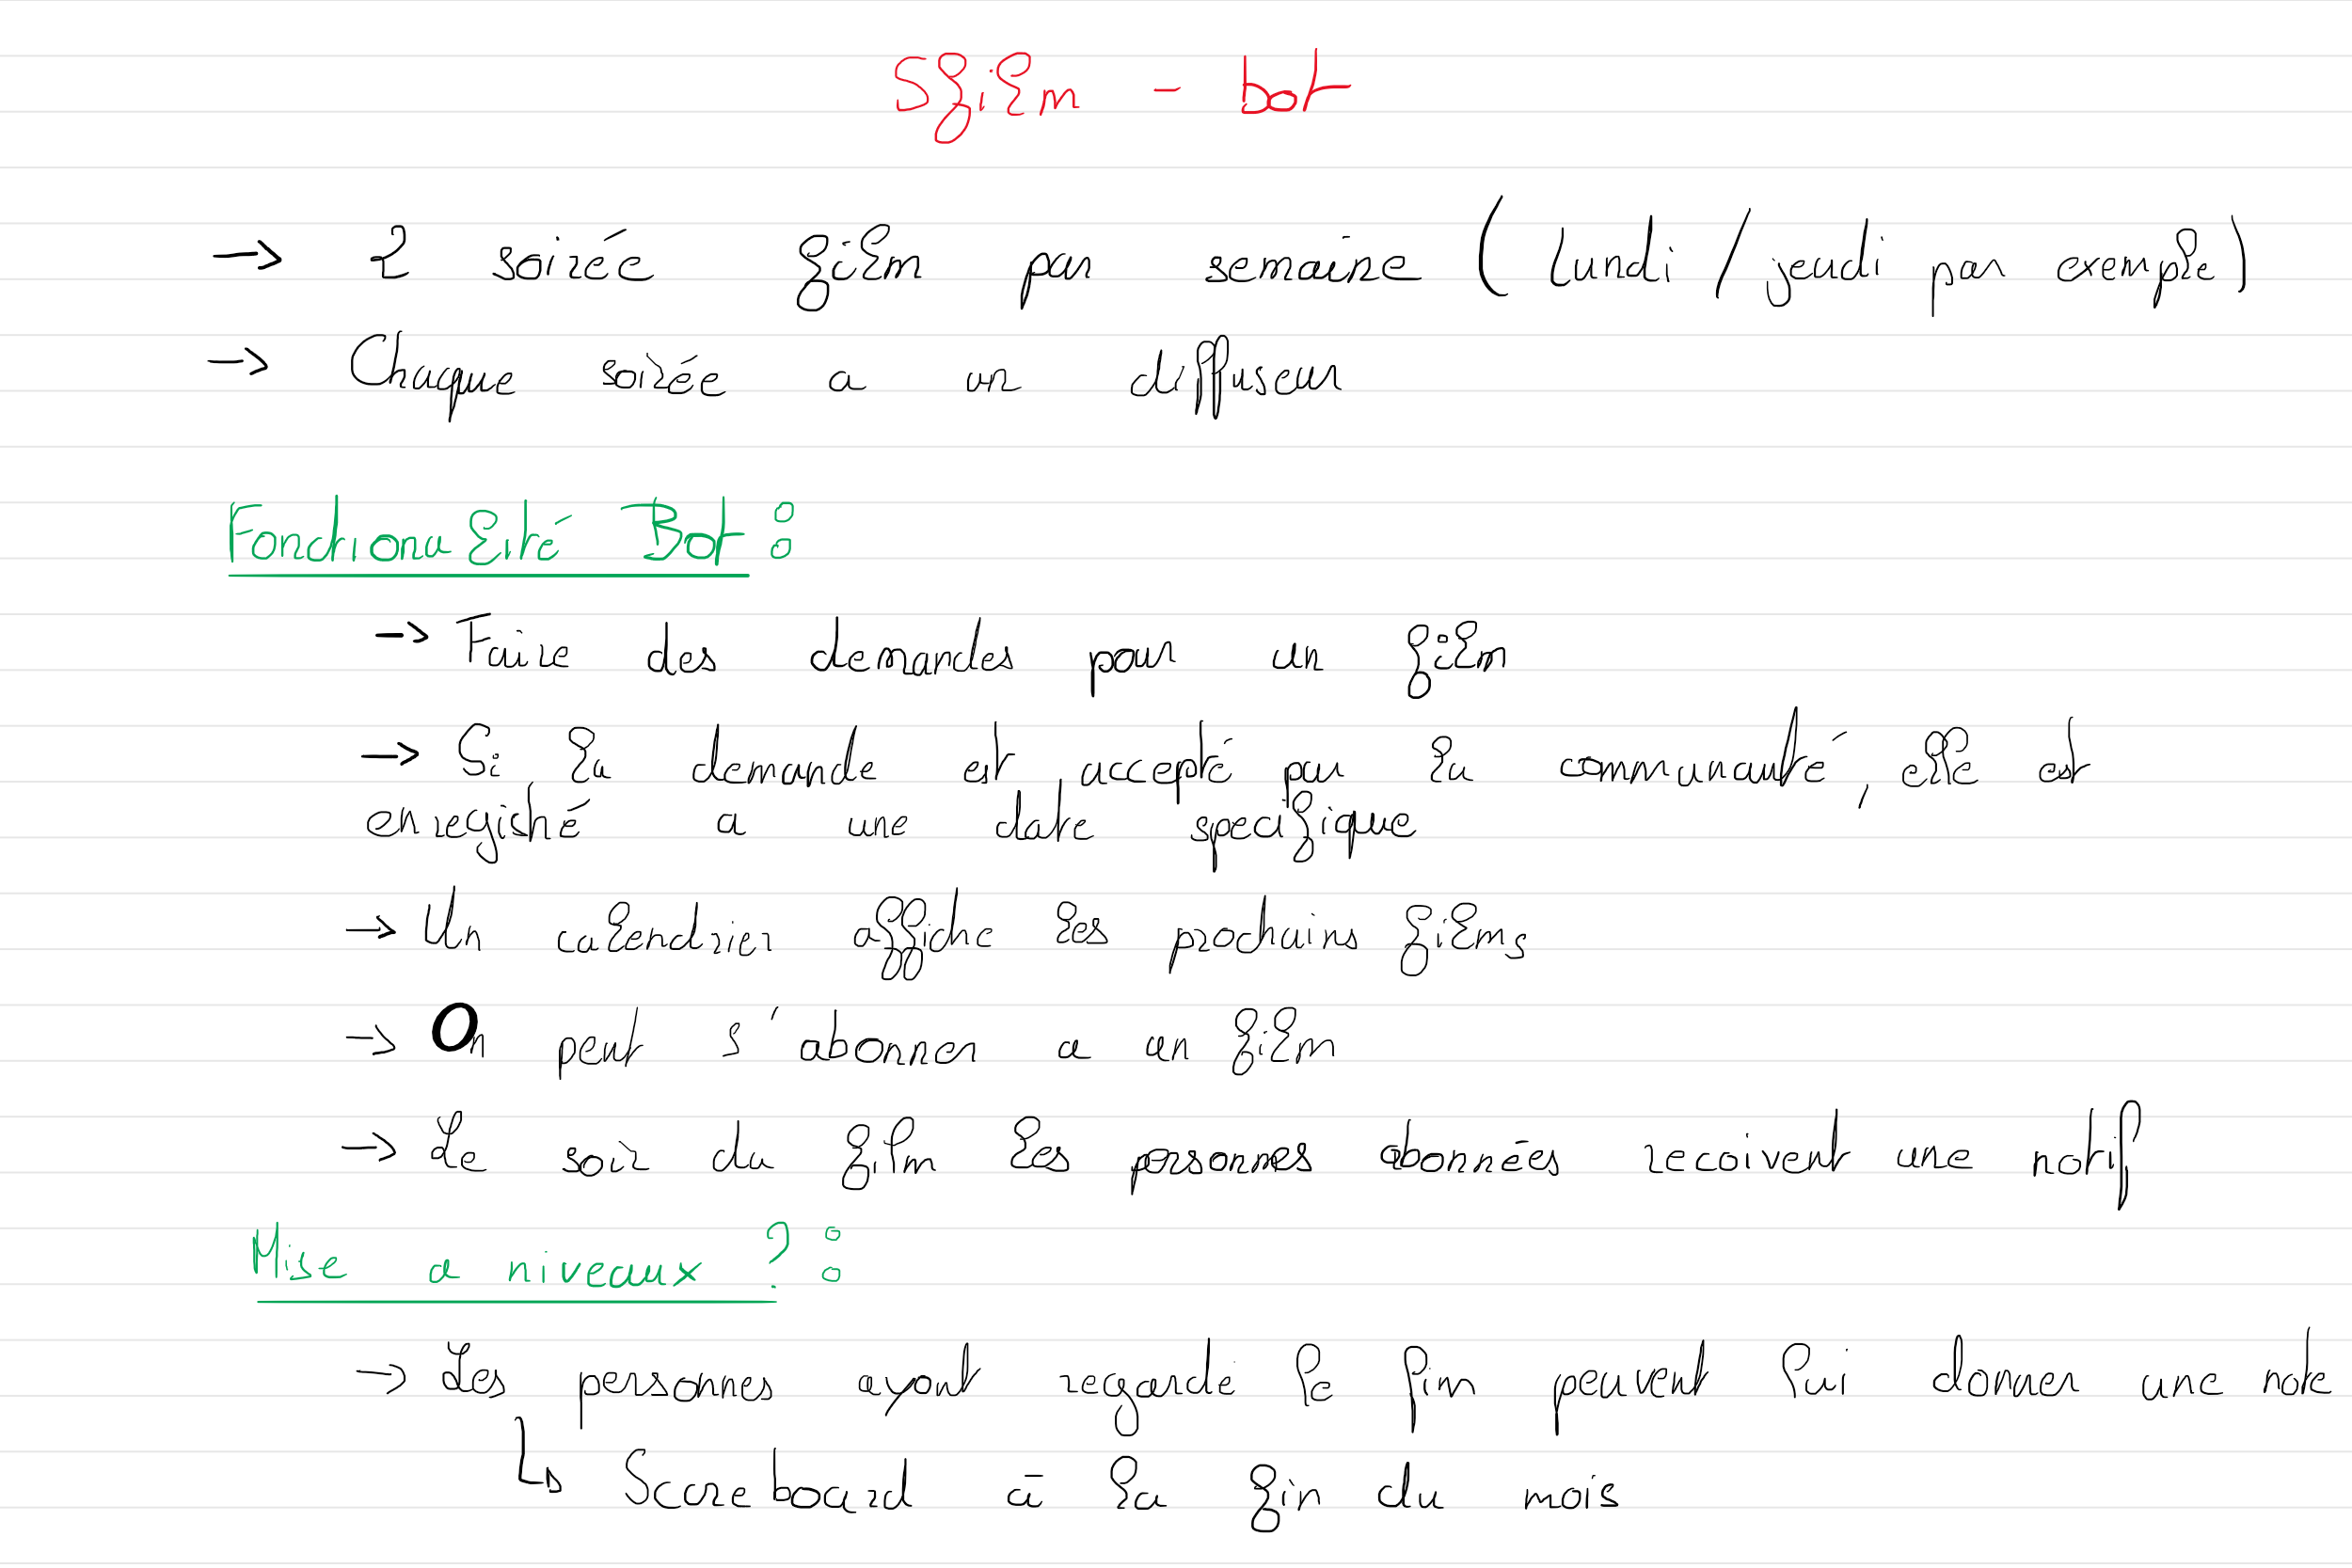 Sfilm - bot
→ 2 soirée film par semaine ( lundi / jeudi par exemple)
→ Chaque soirée a un diffuseur
Fonctionalité Bot :
→ Faire des demandes pour un film
→ Si la demande est accepté par la communauté, elle est
enregistré a une date specifique
→ Un calendrier affiche les prochains films
→ On peut s'abonner a un film
→ Le soir du film les personnes abonnées recoivent une notif
Mise a niveaux ? :
→ Les personnes ayant regardé le fim peuvent lui donner une note
↳ Scoreboard à la fin du mois